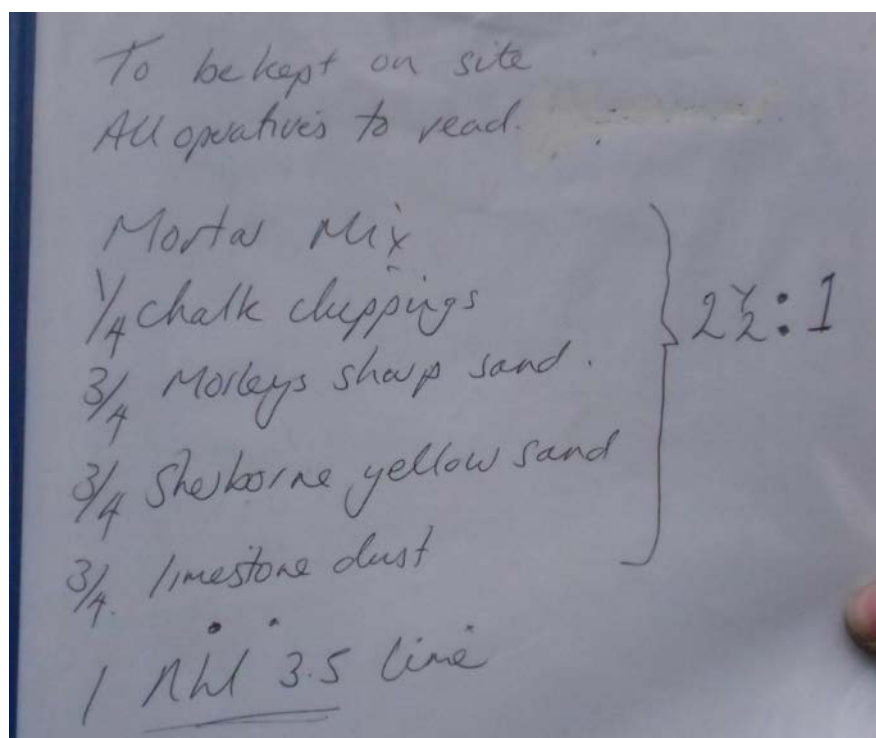 To be kept on site
All operatives to read.
Mortar Mix
1/4 chalk chippings
3/4 Morleys sharp sand.
3/4 Sherborne yellow sand
3/4. limestone dust
2 1/2 : 1
1 NHL 3.5 lime